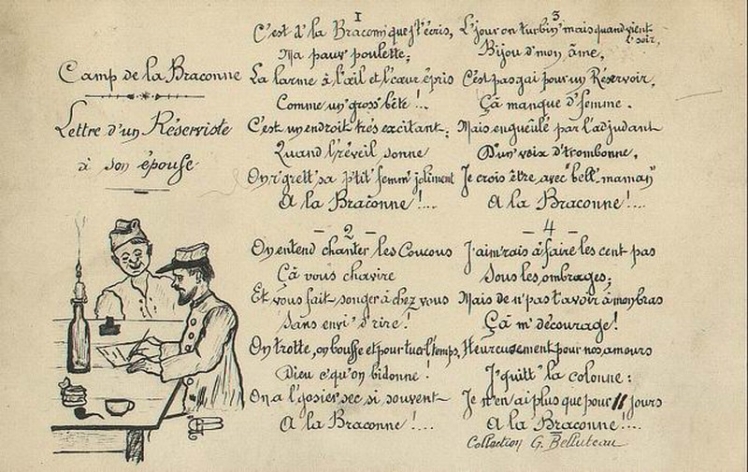 Camp de la Braconne
Lettre d'un Réserviste
à son épouse
1
C'est d'la Braconn' que j't'écris,
Ma pauv' poulette;
La larme à l'œil et l'cœur épris
Comme un' gross' bête !..
C'est un endroit très excitant;
Quand l'réveil sonne
On r'grett' sa p'tit' femm' joliment
A la Braconne !....
- 2 -
On entend chanter les Coucous
Çà vous chavire
Et vous fait songer à chez vous
Sans envi' d'rire !
On trotte, on bouffe et pour tuer l'temps,
Dieu c'qu'on bidonne !
On a l'gosier sec si souvent
A la Braconne !...
3
L'jour on turbin' mais quand vient l'soir,
Bijou d'mon âme,
C'est pas gai pour un Reservoir,
Çà manque d'femme.
Mais engueulé par l'adjudant
D'un' voix d'trombonne,
Je crois être avec "bell' maman"
A la Braconne !....
- 4 -
J'aim'rais à faire les cent pas
Sous les ombrages;
Mais de n'pas t'avoir à mon bras
Çà m' décourage !
Heureusement pour nos amours
J'quitt' la colonne :
Je n'en ai plus que pour 11 jours
A la Braconne !....
Collection G. Belluteau